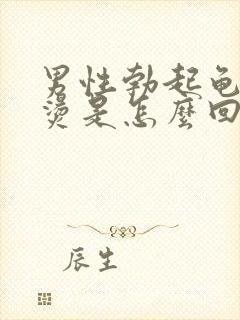 男性勃起龟
烫是怎麼回
辰生